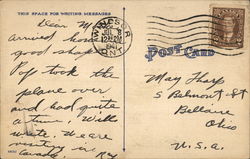 THIS SPACE FOR WRITING MESSAGES
Dear M
arrived home
good shape
Pop took the
plane over
and had quite
a time. Will
write. We are
in
Canada.
WINDSOR
JUL 8
12 PM
1941
ONT
POST CARD
May Tharp
5 Belmont St
Bellaire
Ohio
U.S.A.